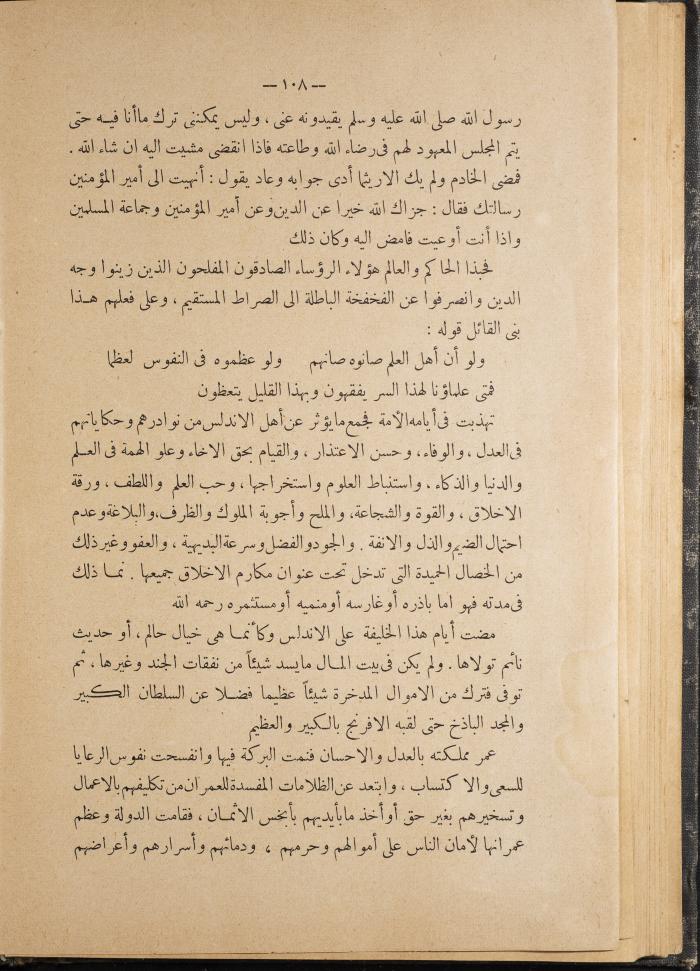 — ١٠٨ —
رسول الله صلى الله عليه وسلم يقيدونه عنى ، وليس يمكننى ترك ماأنا فيــه حتى
يتم المجلس المعهود لهم فى رضاء الله وطاعته فاذا انقضى مشيت اليه ان شاء الله .
فمضى الخادم ولم يك الاريثما أدى جوابه وعاد يقول : أنهيت الى أمير المؤمنين
رسالتك فقال : جزاك الله خيرا عن الدين وعن أمير المؤمنين وجماعة المسلمين
واذا أنت أوعيت فامض اليه وكان ذلك
فحبذا الحاكم والعالم هؤلاء الرؤساء الصادقون المفلحون الذين زينوا وجه
الدين وانصرفوا عن الفخفخة الباطلة الى الصراط المستقيم ، وعلى فعلهم هــذا
بنى القائل قوله :
ولو أن أهل العلم صانوه صانهم ولو عظموه فى النفوس لعظما
فمتى علماؤنا لهذا السر يفقهون وبهذا القليل يتعظون
تهذبت فى أيامه الأمة فجمع مايؤثر عن أهل الاندلس من نوادرهم وحكاياتهم
فى العدل ، والوفاء ، وحسن الاعتذار ، والقيام بحق الاخاء وعلو الهمة فى العــلم
والدنيا والذكاء ، واستنباط العلوم واستخراجها ، وحب العلم واللطف ، ورقة
الاخلاق ، والقوة والشجاعة، والملح وأجوبة الملوك والظرف،والبلاغة وعدم
احتمال الضيم والذل والانفة . والجود والفضل وسرعة البديهية ، والعفو وغير ذلك
من الخصال الحميدة التى تدخل تحت عنوان مكارم الاخلاق جميعها . نمــا ذلك
فى مدته فهو اما باذره أو غارسه أو منميه أو مستثمره رحمه الله
مضت أيام هذا الخليفة على الاندلس وكأنمــا هى خيال حالم ، أو حديث
نائم تولاها . ولم يكن فى بيت المــال مايسد شيئاً من نفقات الجند وغيرها ، ثم
توفى فترك من الاموال المدخرة شيئاً عظيما فضــلا عن السلطان الكبير
والمجد الباذخ حتى لقبه الافرنج بالكبير والعظيم
عمر مملكته بالعدل والاحسان فنمت البركة فيها وانفسحت نفوس الرعايا
للسعى والاكتساب ، وابتعد عن الظلامات المفسدة للعمران من تكليفهم بالاعمال
وتسخيرهم بغير حق أو أخذ مابأيديهم بأبخس الأثمــان ، فقامت الدولة وعظم
عمرانها لأمان الناس على أموالهم وحرمهم ، ودمائهم وأسرارهم وأعراضهم